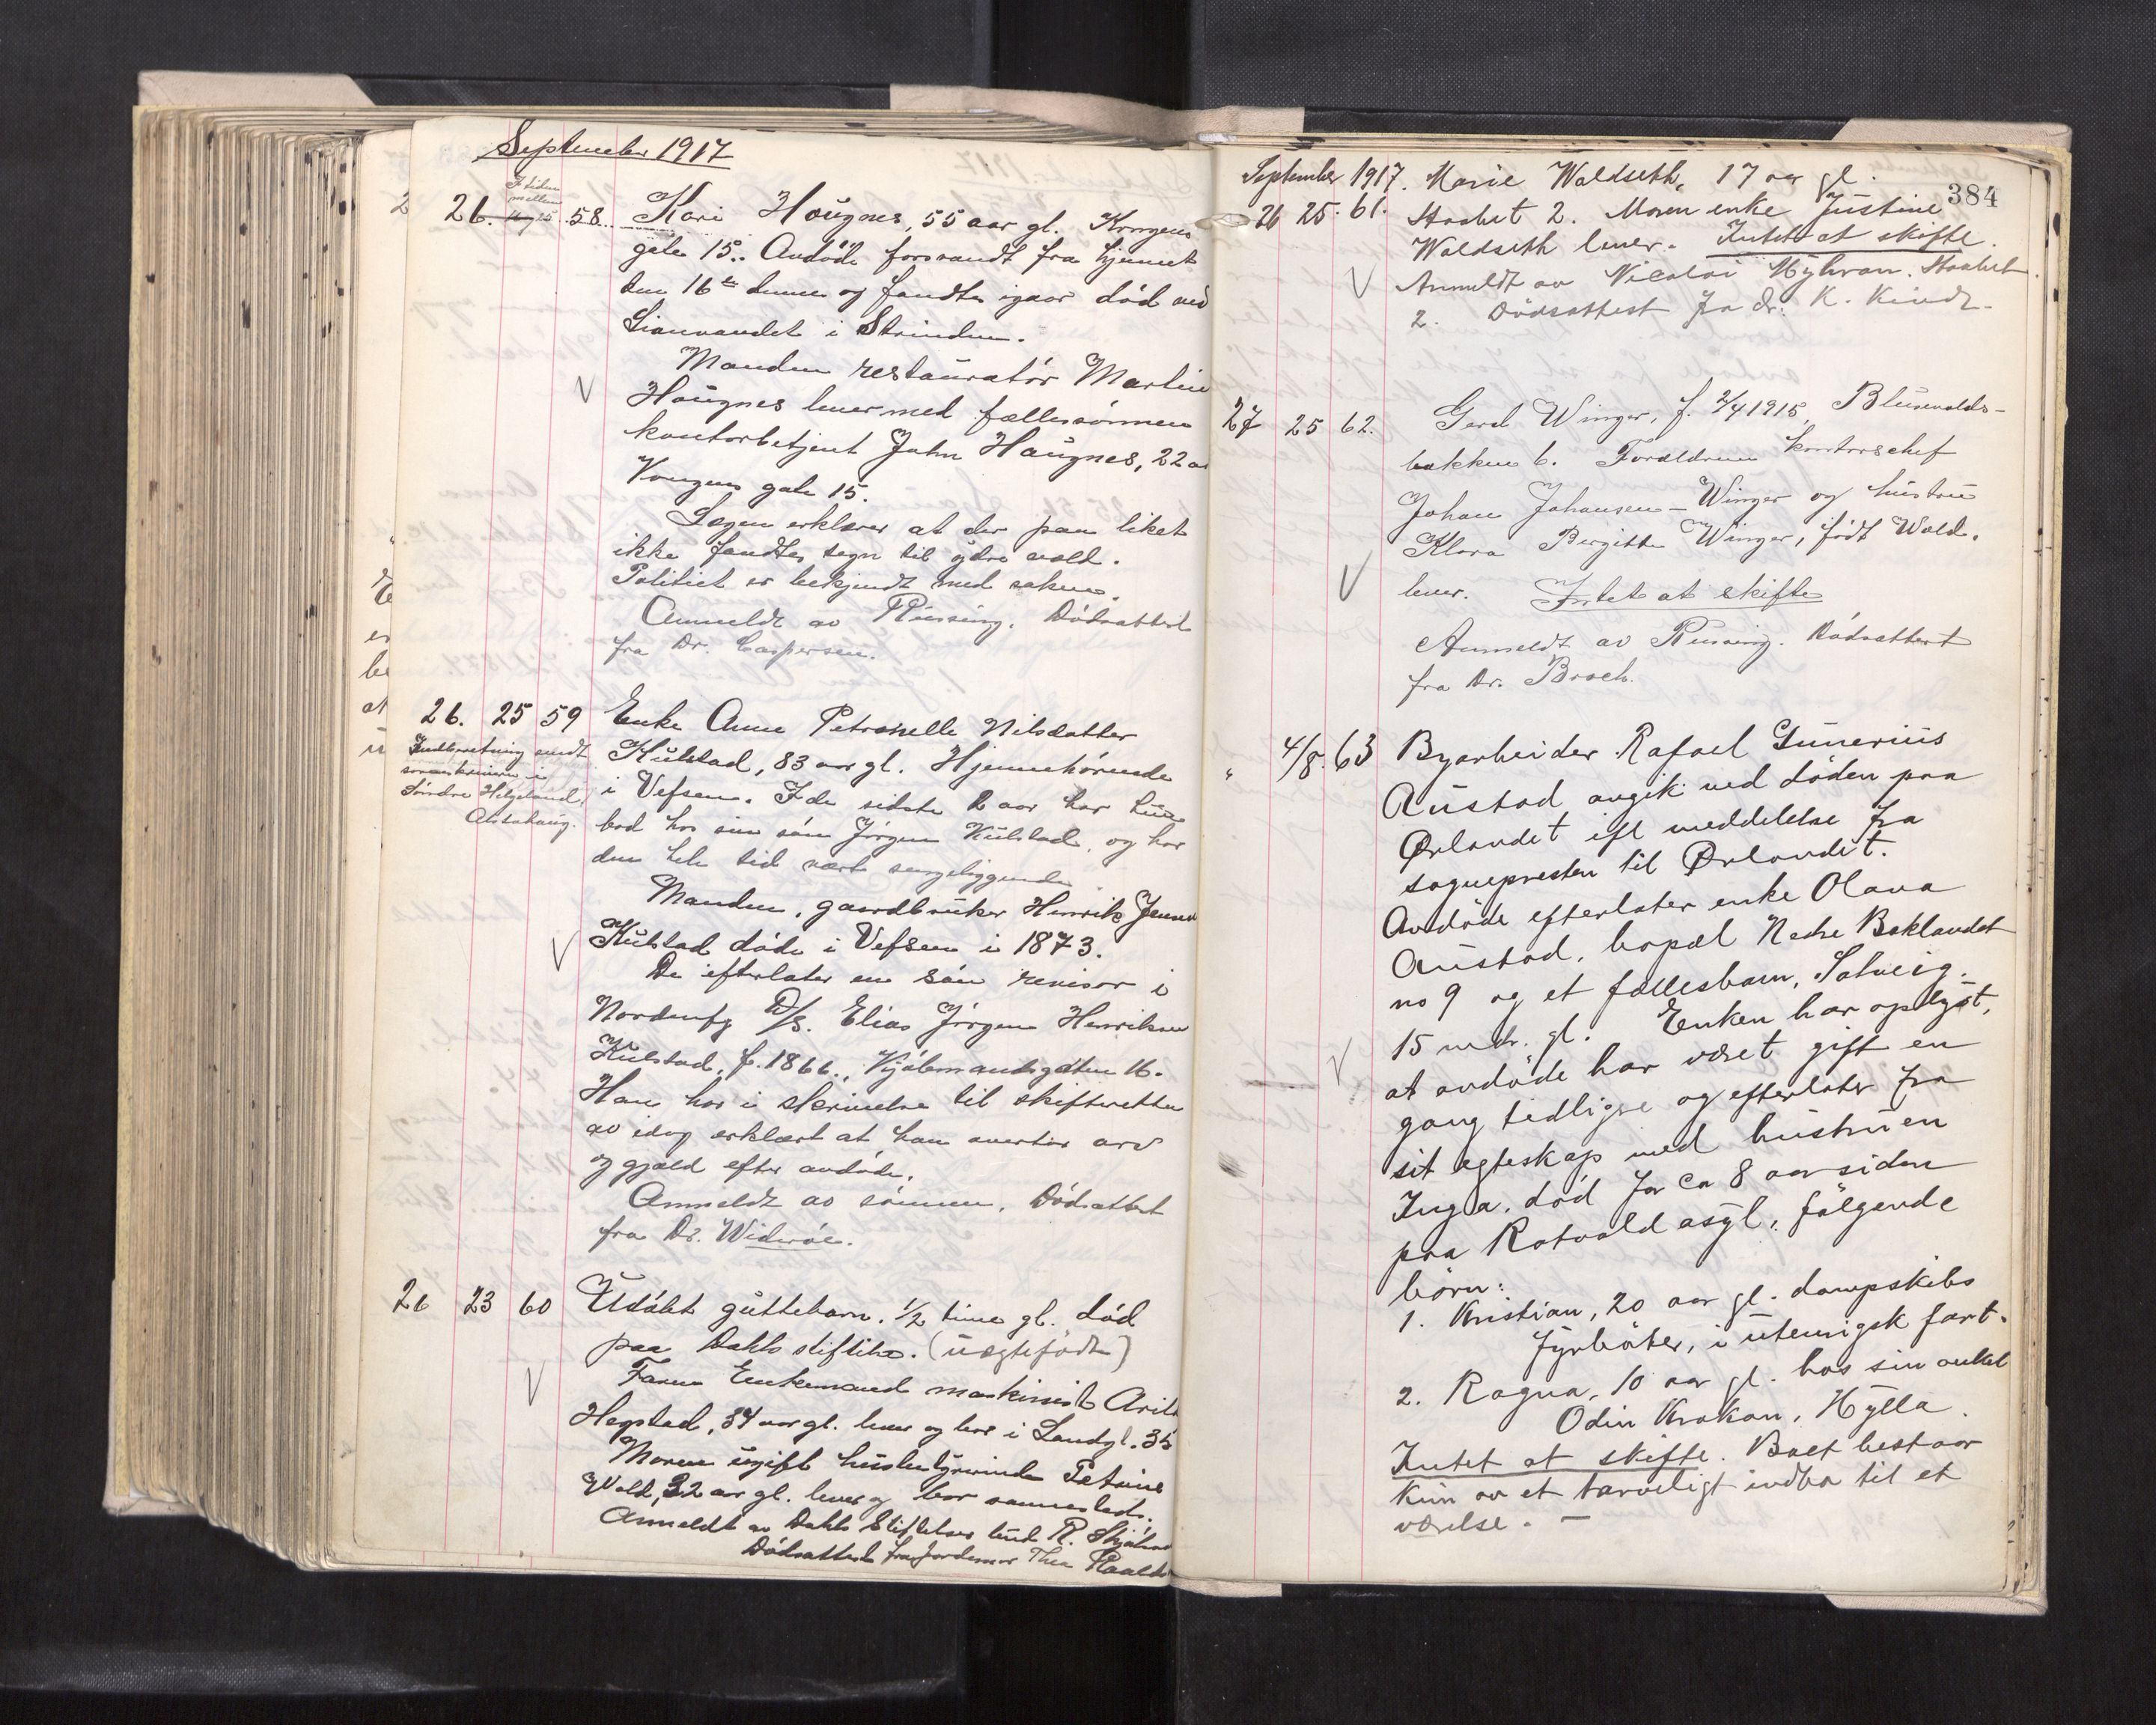 September 1917
I tiden
mellem
26. 16 og 25 58. Kari Haugnes, 55 aar gl. Kongens
gate 15. Avdöde forsvandt fra hjemmet
den 16de dennes og fandtes igaar död ved
Lianvandet i Strinden.
Manden restauratör Martin
Haugnes lever med fællessönnen
kontorbetjent John Haugnes, 22 aar
Kongens gate 15.
Lægen erklærer at der paa liket
ikke fandtes tegn til ydre vold.
Politiet er bekjendt med saken.
Anmeldt av Risssing. Dödsattest
fra Dr. Caspersen.
26. 25 59 Enke Anne Petronelle Nilsdatter
Indberetning sendt
sorenskriveren i
Söndre Helgeland,
Alstahaug.
Kulstad, 83 aar gl. Hjemmehörende
i Vefsen. I de sidste 2 aar har hun
bod hos sin sön Jörgen Kulstad, og har
den hele tid vært sengeliggende
Manden, gaardbruker Henrik Jensen
Kulstad döde i Vefsen i 1873.
De efterlater en sön revisor i
Nordenfj D/S. Elias Jörgen Henriksen
Kulstad, f. 1866., Kjöbmandsgaten 16.
Han har i skrivelse til skifteretten
av idag erklært at han overtar arv
og gjæld efter avdöde.
Anmeldt av sönnen. Dödsattest
fra Dr. Wideröe.
26 23 60 Udöbt guttebarn, 1/2 time gl. död
paa Dahls stiftelse. (uegtefödt)
Faren Enkemand maskinist Arild
Hegstad, 34 aar gl. lever og bor i Landgt. 35
Moren ugift husbestyrerinde Petrine
Wold, 32 aar gl. lever og bor sammesteds.
Anmeldt av Dahls Stiftelse ved R.
Dödsattest fra jordemor Thea
384
September 1917. Marie Waldseth, 17 aar gl.
26 25. 61. Stavbet 2. Moren enke Justine
Waldseth lever. Intet at skifte.
Anmeldt av Nicolai Myhran. Stavbet
2. Dödsattest fra dr. K. Kindt.
27 25 62. Gerd Winger, f. 2/4 1915, Blusevolds-
bakken 6. Forældrene kontorschef
Johan Johansen-Winger og hustru
Klara Birgitte Winger, födt Wold.
lever. Intet at skifte
Anmeldt av Rissing. Dödsattest
fra Dr. Broch.
" 4/8. 63 Byarbeider Rafael Gunerius
Austad avgik ved döden paa
Ørlandet ifl meddelelse fra
sognepresten til Ørlandet.
Avdöde efterlater enke Olava
Austad, bopæl Nedre Baklandet
no 9 og et fællesbarn, Solveig.
15 mdr. gl. Enken har oplyst,
at avdöde har været gift en
gang tidligere og efterlater fra
sit egteskap med hustruen
Inga, död for ca 8 aar siden
paa Rotvold asyl, fölgende
börn:
1. Kristian, 20 aar gl. dampskibs
fyrböter, i utenrigsk fart.
2. Ragna, 10 aar gl. hos sin onkel
Odin Krokan, Hylla.
Intet at skifte. Boet bestaar
kun av et tarveligt indbo til et
værelse. —